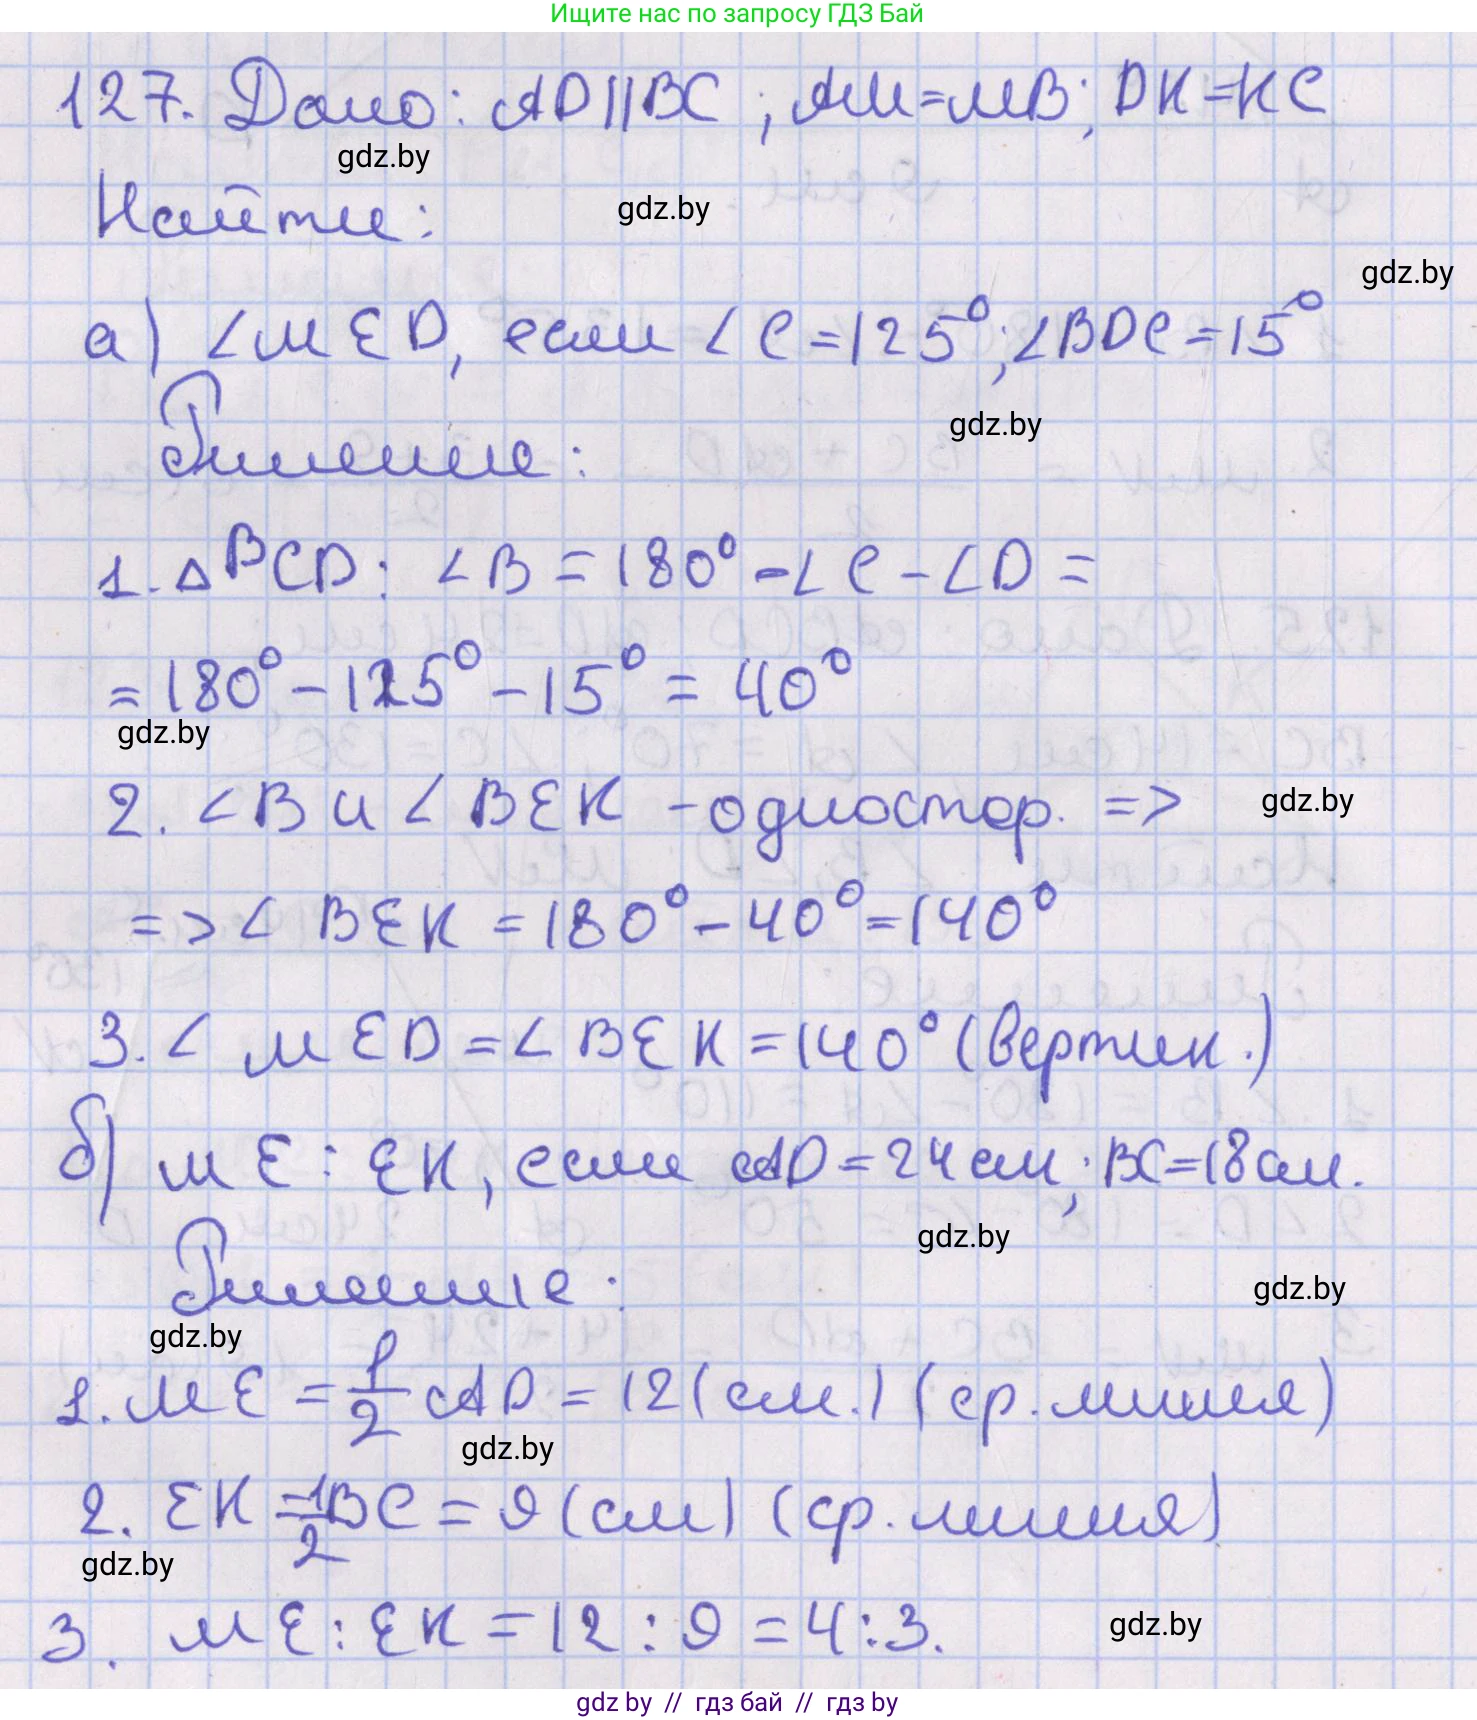 Ищите нас по запросу ГДЗ Бай
127. Дано: AD||BC; AM=MB; DK=KC
gdz.by
Найти:
gdz.by
gdz.by
а) ∠MED, если ∠C=125°; ∠BDC=15°
gdz.by
Решение:
1. △BCD: ∠B=180°-∠C-∠D=
=180°-125°-15°=40°
gdz.by
2. ∠B и ∠BEK - одностор. =>
gdz.by
=> ∠BEK=180°-40°=140°
3. ∠MED=∠BEK=140° (вертик.)
б) ME:EK, если AD=24см; BC=18см.
gdz.by
Решение:
gdz.by
gdz.by
1. ME=1/2 AD=12(см.) (ср. линия)
gdz.by
2. EK=1/2 BC=9(см) (ср. линия)
gdz.by
3. ME:EK=12:9=4:3.
gdz.by
gdz by // гдз бай // гдз by